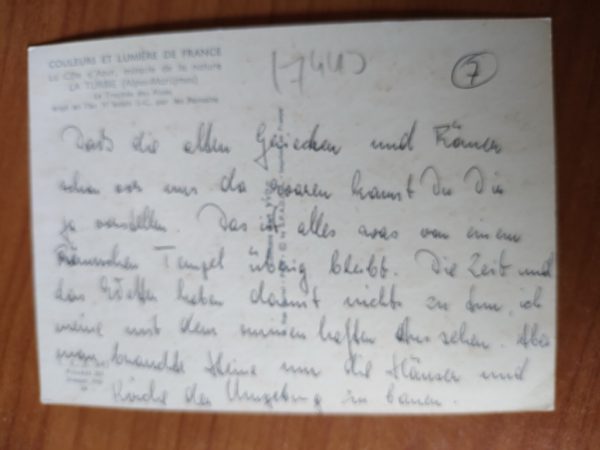 COULEURS ET LUMIÈRE DE FRANCE
La Côte d'Azur, miracle de la nature
LA TURBIE (Alpes-Maritimes)
Le Trophée des Alpes
érigé en l'an VI avant J.-C. par les Romains
(7443)
7
Daß die alten Griechen und Römer
schon vor uns da waren kannst Du Dir
ja vorstellen. Das ist alles was von einem
Römischen Tempel übrig bleibt. Die Zeit und
das Wetter haben damit nichts zu tun, ich
meine mit dem ruinenhaften Aussehen. Aber
man brauchte Steine um die Häuser und
Kirche der Umgebung zu bauen.